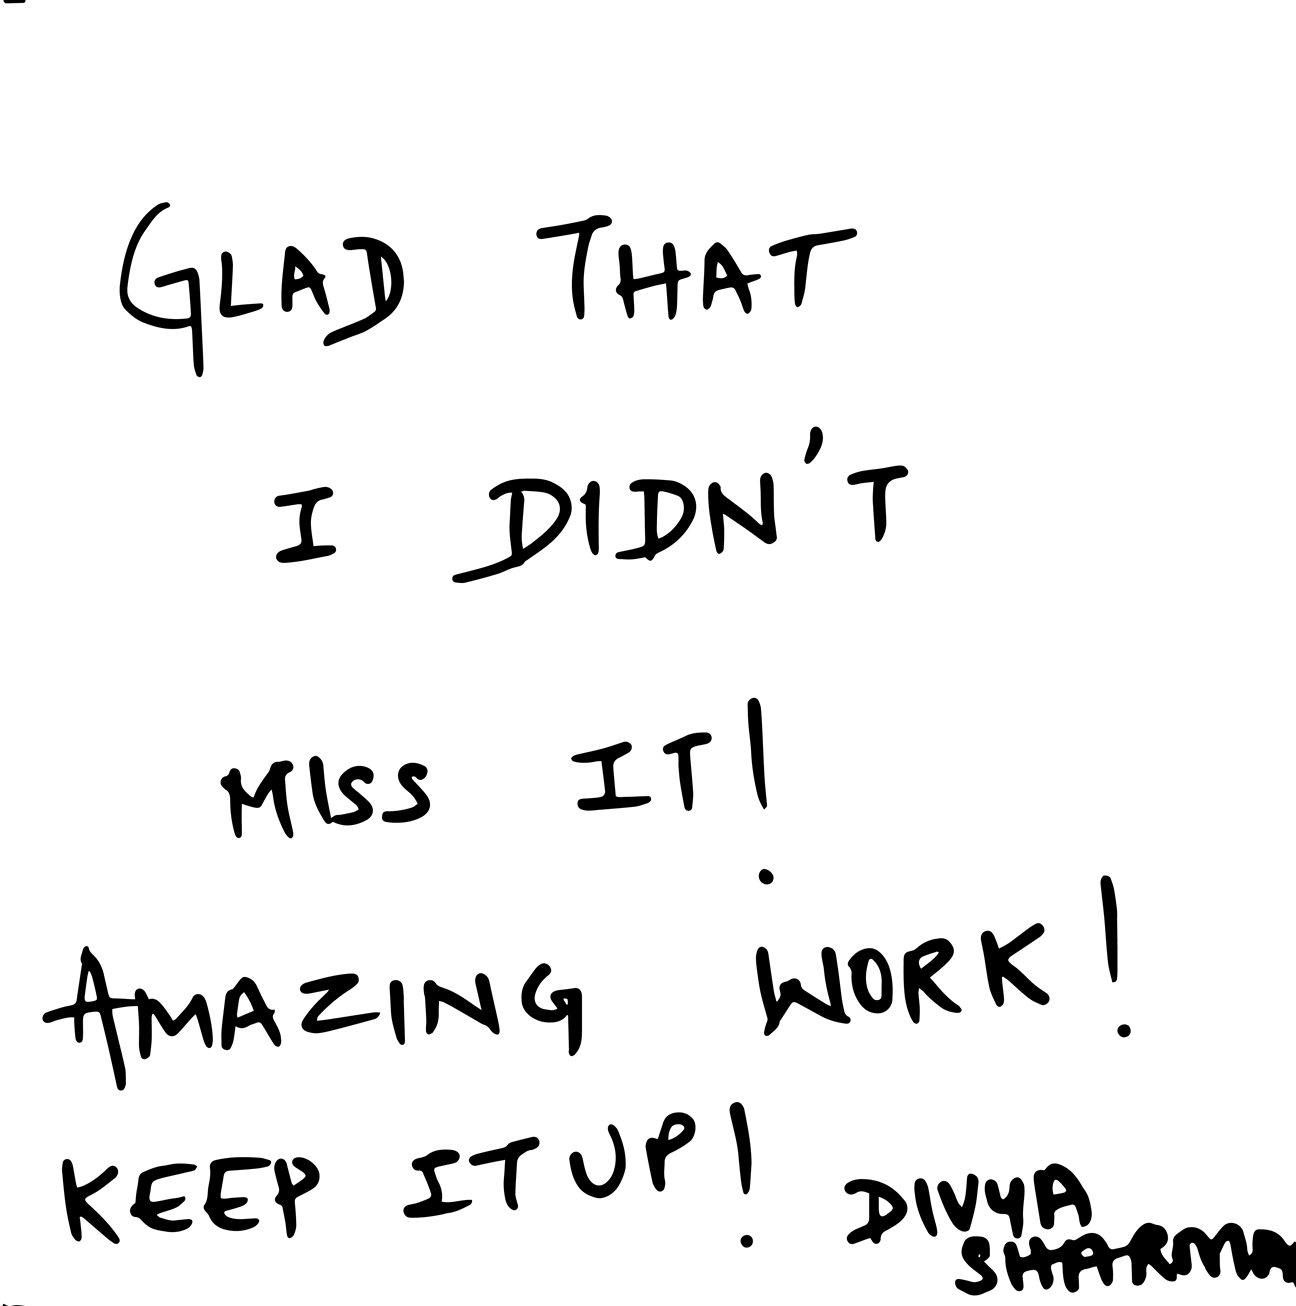 GLAD THAT
I DIDN'T
MISS IT!
AMAZING WORK!
KEEP IT UP!
DIVYA
SHARMA